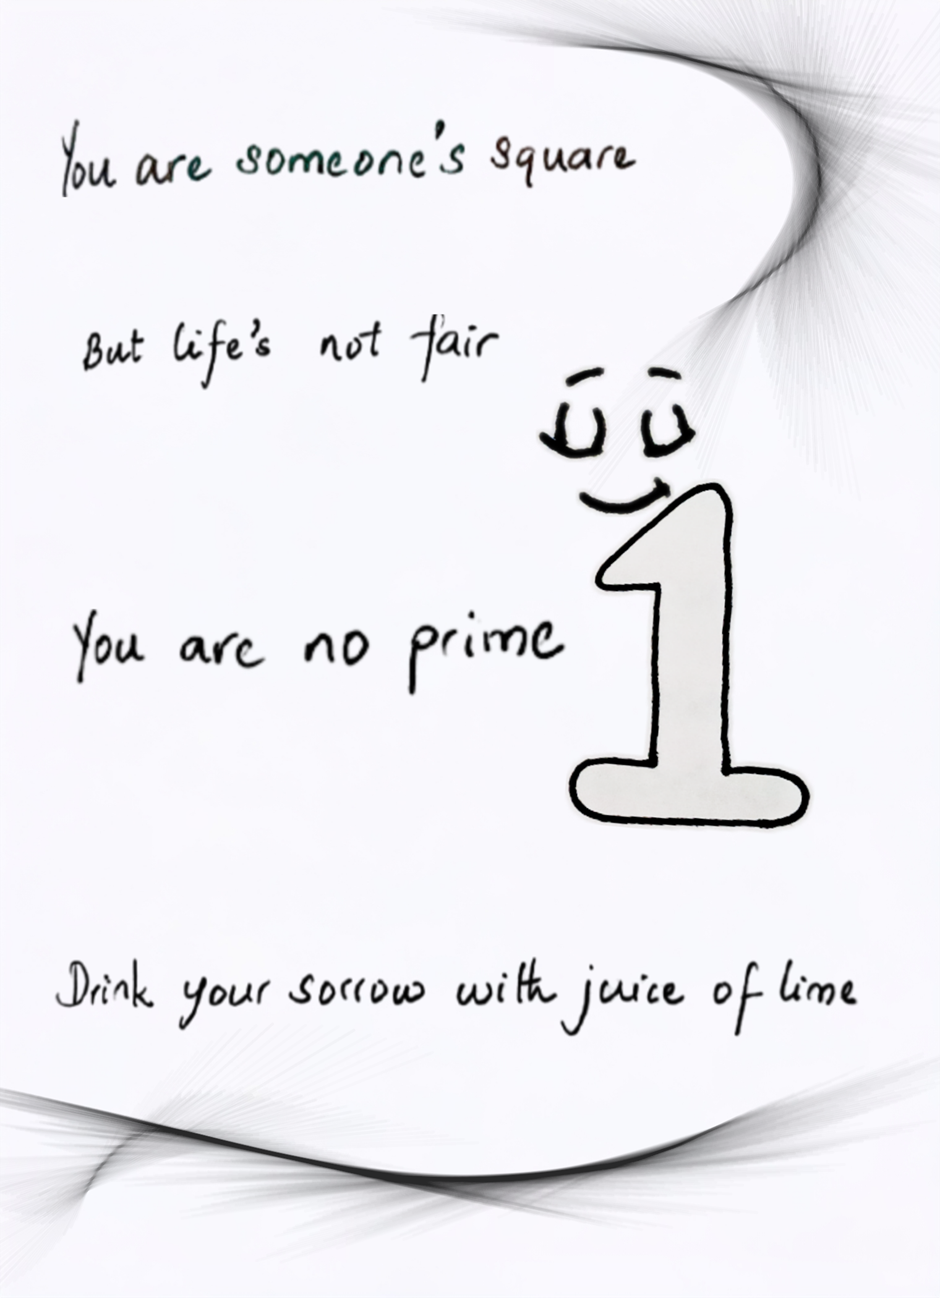 You are someone's square
But life's not fair
You are no prime
1
Drink your sorrow with juice of lime